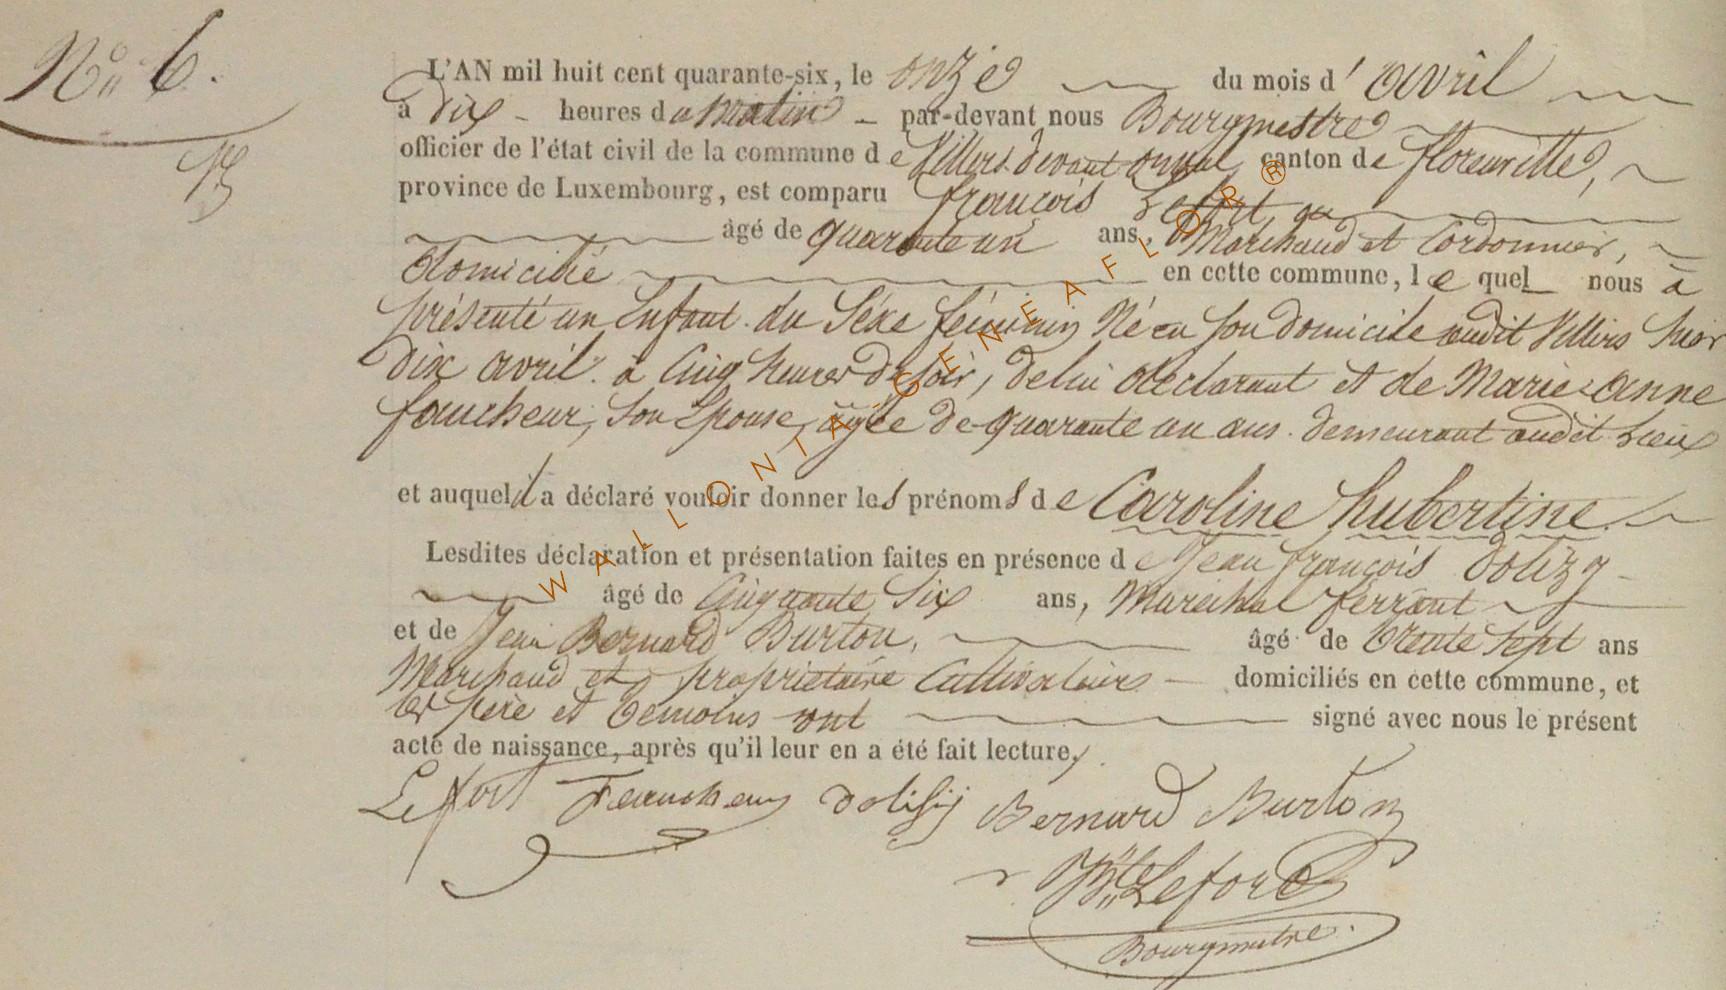 N° 6.
L'AN mil huit cent quarante-six, le onze du mois d' avril
à dix heures du matin par-devant nous Bourgmestre
officier de l'état civil de la commune de Villers devant orval canton de florenville,
province de Luxembourg, est comparu françois Lefort,
âgé de quarante un ans, Marchand et Cordonnier,
domicilié en cette commune, lequel nous à
présenté un Enfant du Séxe féminin Né en son domicile audit Villers hier
dix avril à Cinq heures du soir, de lui déclarant et de Marie-anne
faucheur, son Epouse, âgée de quarante un ans. demeurant audit Lieux
et auquel il a déclaré vouloir donner les prénoms de Caroline hubertine
Lesdites déclaration et présentation faites en présence de Jean françois dolizy
âgé de Cinquante Six ans, Maréchal ferrant
et de Jean Bernard Burton, âgé de trente sept ans
Marchand et propriétaire Cultivateur domiciliés en cette commune, et
les père et témoins ont signé avec nous le présent
acte de naissance, après qu'il leur en a été fait lecture.
Lefort Faucheur dolisy Bernard Burton
Lefort
Bourgmestre.
WALLONIA GENEAFLOR ®